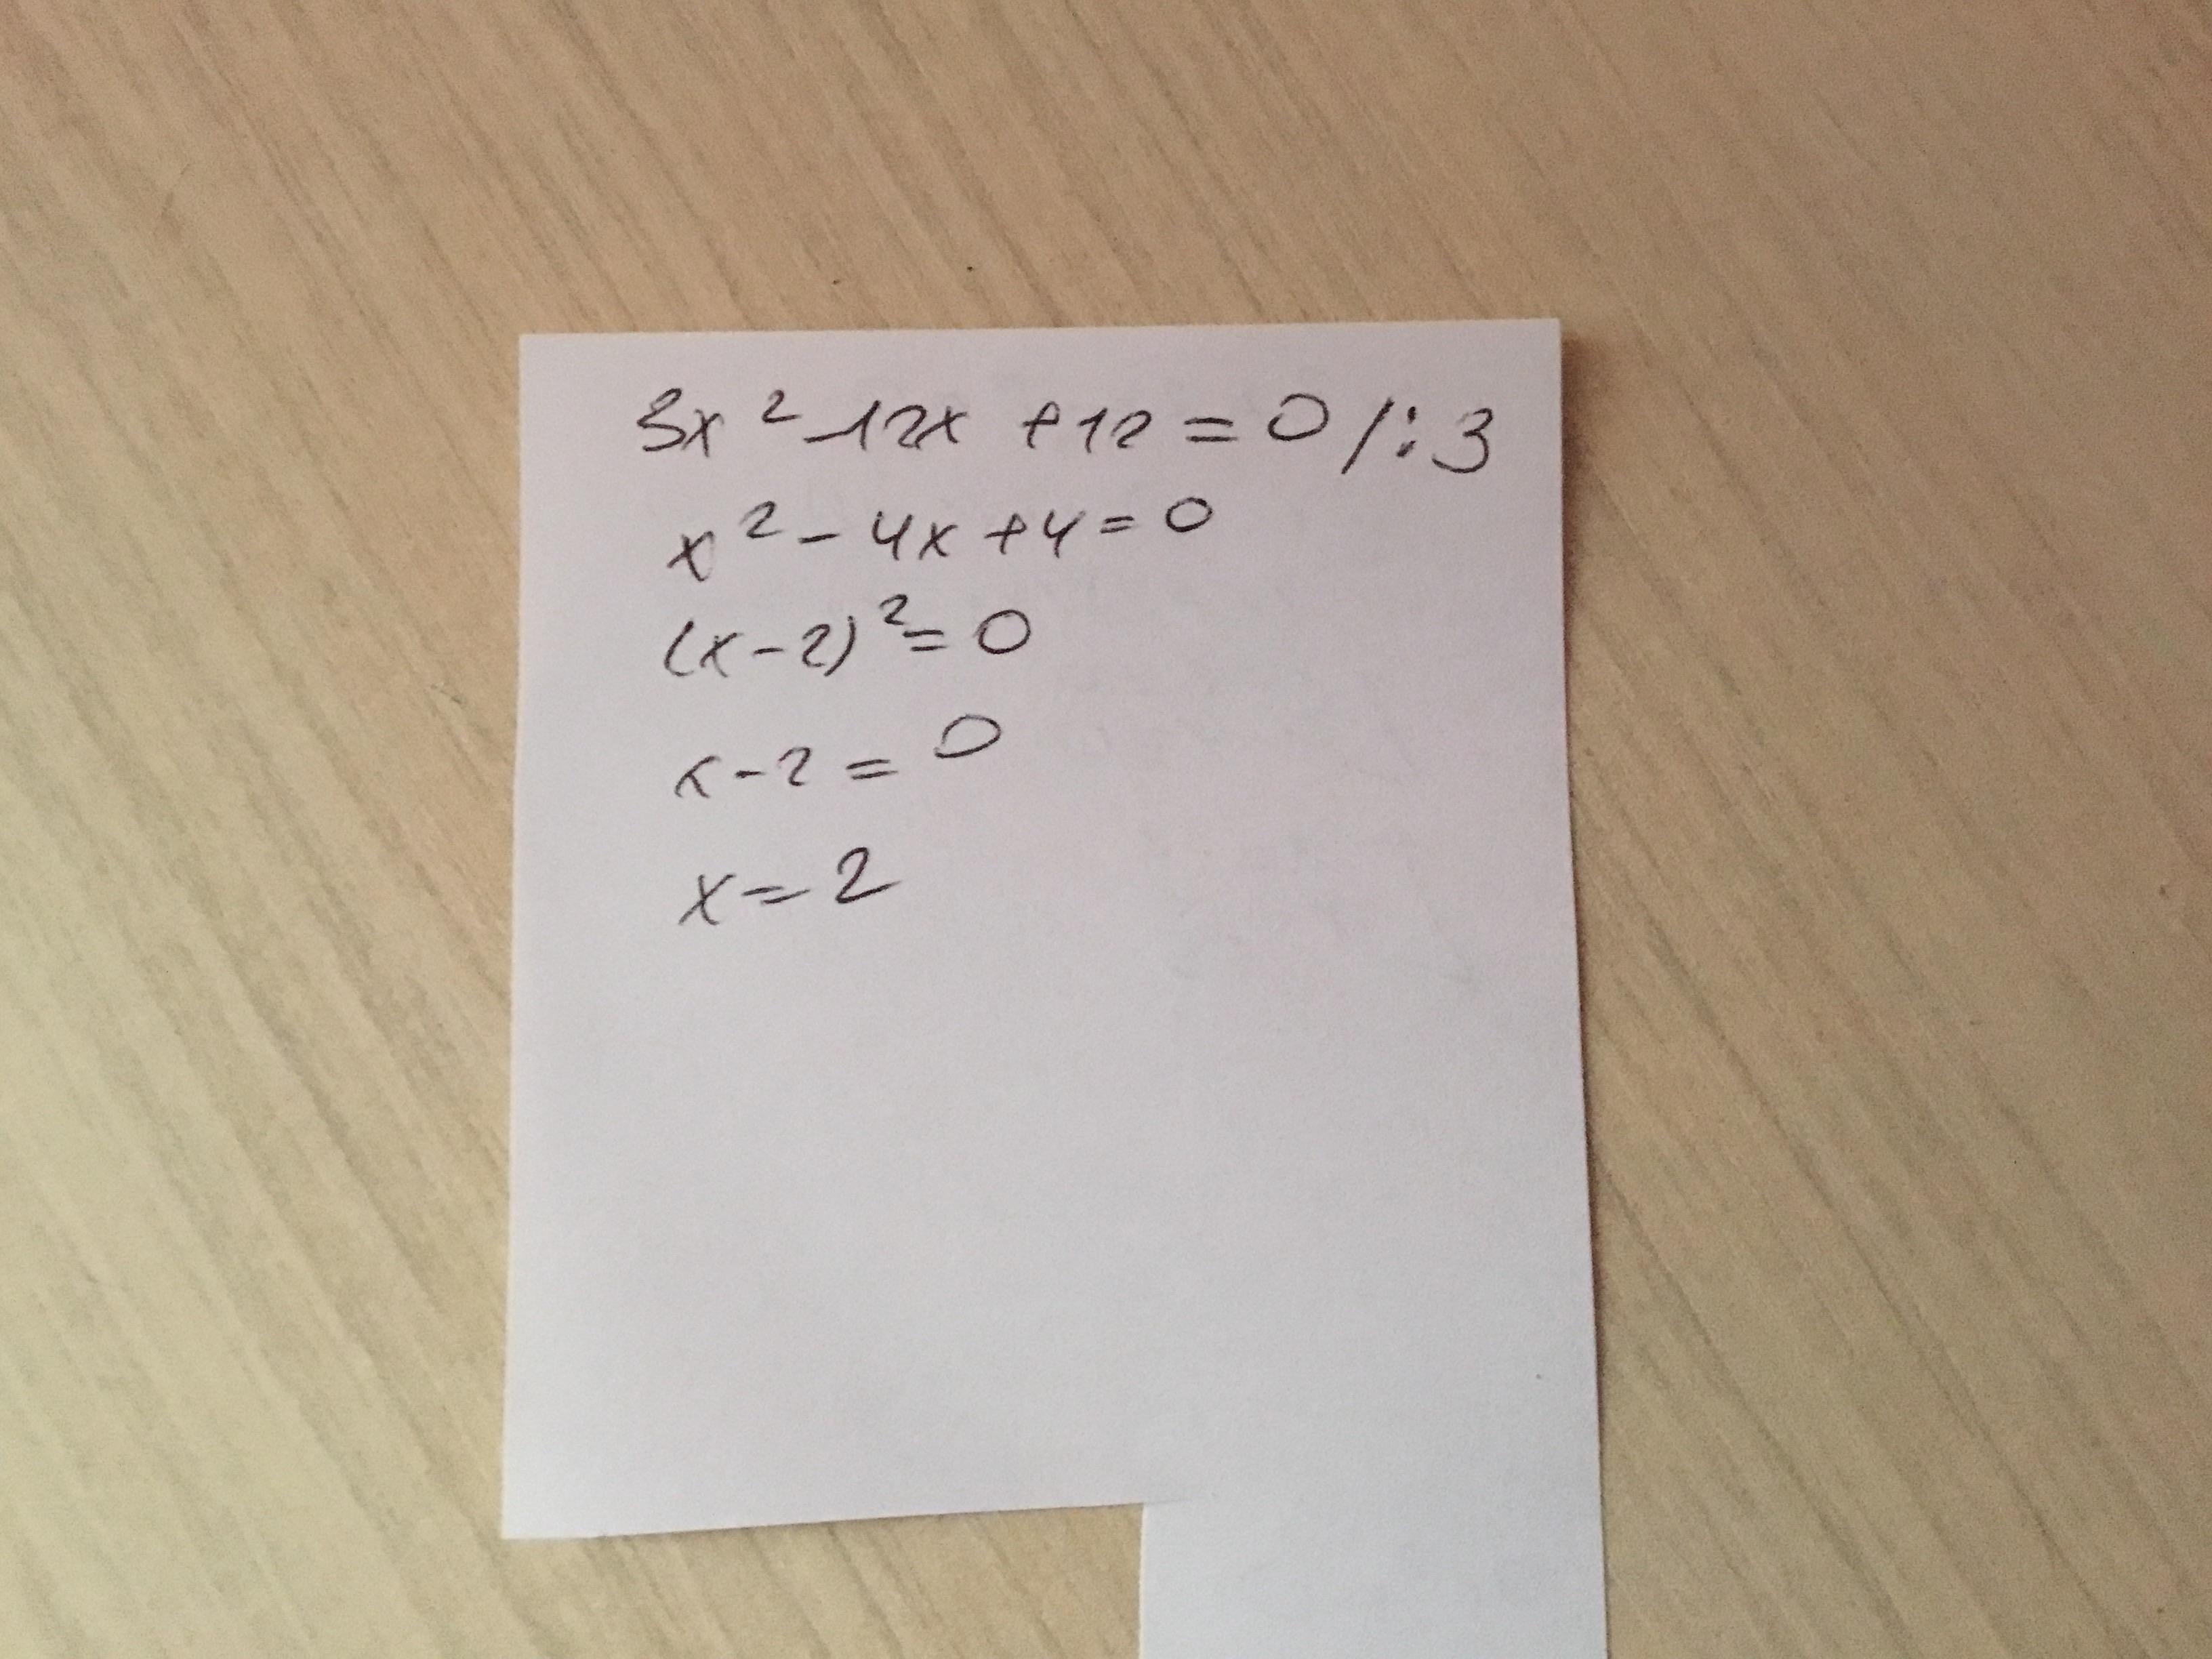 3x² - 12x + 12 = 0 /:3
x² - 4x + 4 = 0
(x - 2)² = 0
x - 2 = 0
x = 2